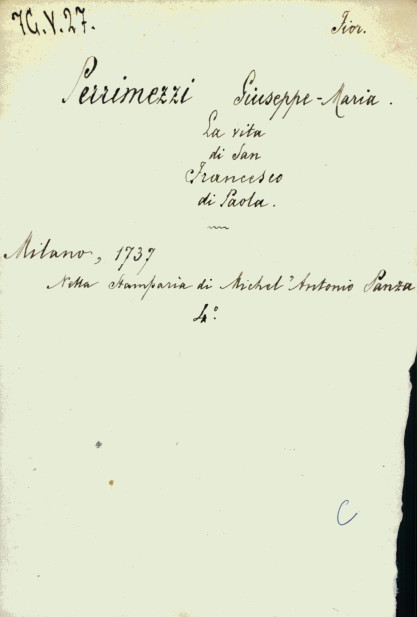 7G.V.27. Fior.
Perrimezzi Giuseppe-Maria.
La vita
di San
Francesco
di Paola.
Milano, 1737
Nella Stamparia di Michel'Antonio Panza
4°
C